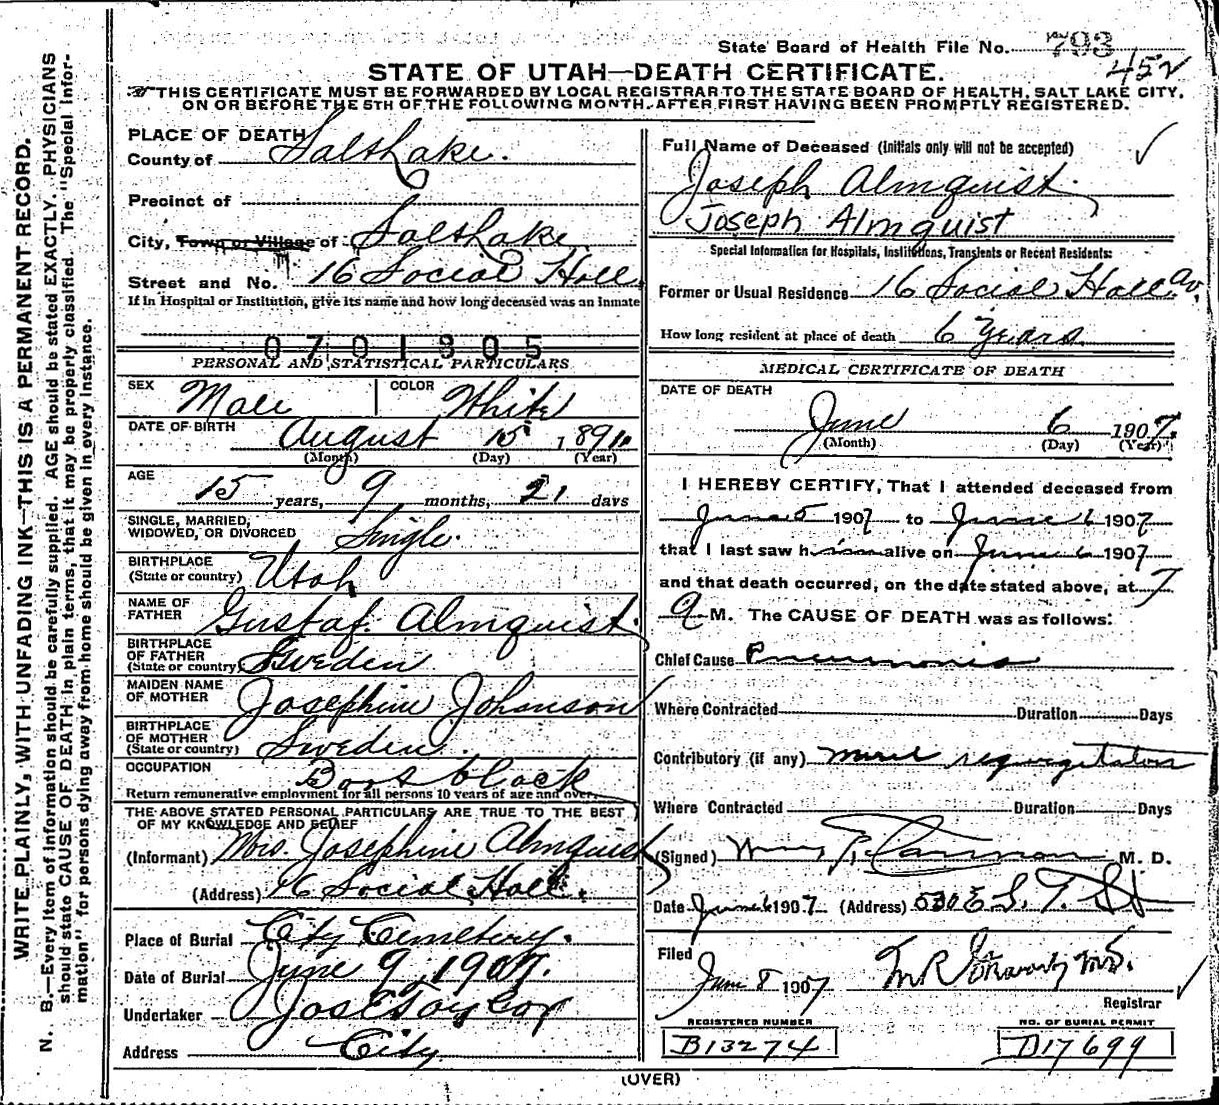 WRITE PLAINLY, WITH UNFADING INK—THIS IS A PERMANENT RECORD.
N. B.—Every item of information should be carefully supplied. AGE should be stated EXACTLY. PHYSICIANS
should state CAUSE OF DEATH in plain terms, that it may be properly classified. The "Special Infor-
mation" for persons dying away from home should be given in every instance.
State Board of Health File No. 793
452
STATE OF UTAH—DEATH CERTIFICATE.
THIS CERTIFICATE MUST BE FORWARDED BY LOCAL REGISTRAR TO THE STATE BOARD OF HEALTH, SALT LAKE CITY,
ON OR BEFORE THE 5TH OF THE FOLLOWING MONTH, AFTER FIRST HAVING BEEN PROMPTLY REGISTERED.
PLACE OF DEATH
County of Salt Lake.
Precinct of
City, Town or Village of Salt Lake
Street and No. 16 Social Hall
If in Hospital or Institution, give its name and how long deceased was an inmate
0701305
PERSONAL AND STATISTICAL PARTICULARS
SEX Male COLOR White
DATE OF BIRTH August 15 1891
(Month) (Day) (Year)
AGE 15 years, 9 months, 21 days
SINGLE, MARRIED,
WIDOWED, OR DIVORCED Single.
BIRTHPLACE
(State or country) Utah
NAME OF
FATHER Gustaf. Almquist
BIRTHPLACE
OF FATHER
(State or country) Sweden
MAIDEN NAME
OF MOTHER Josephine Johnson
BIRTHPLACE
OF MOTHER
(State or country) Sweden
OCCUPATION
Return remunerative employment for all persons 10 years of age and over.
THE ABOVE STATED PERSONAL PARTICULARS ARE TRUE TO THE BEST
OF MY KNOWLEDGE AND BELIEF
(Informant) Mrs. Josephine Almquist
(Address) 16 Social Hall.
Place of Burial City Cemetery.
Date of Burial June 9, 1907.
Undertaker Jos E Taylor
Address City
Full Name of Deceased (Initials only will not be accepted)
Joseph Almquist
Joseph Almquist
Special Information for Hospitals, Institutions, Transients or Recent Residents:
Former or Usual Residence 16 Social Hall Av.
How long resident at place of death 6 Years.
MEDICAL CERTIFICATE OF DEATH
DATE OF DEATH
June 6 1907.
(Month) (Day) (Year)
I HEREBY CERTIFY, That I attended deceased from
June 5 1907 to June 6 1907
that I last saw him alive on June 6 1907
and that death occurred, on the date stated above, at 7
a M. The CAUSE OF DEATH was as follows:
Chief Cause Pneumonia
Where Contracted Duration Days
Contributory (if any)
Where Contracted Duration Days
(Signed) Cannon M. D.
Date June 6 1907 (Address) 530 E S. T. St
Filed
June 8 1907
Registrar
REGISTERED NUMBER
B13274
NO. OF BURIAL PERMIT
D17699
(OVER)